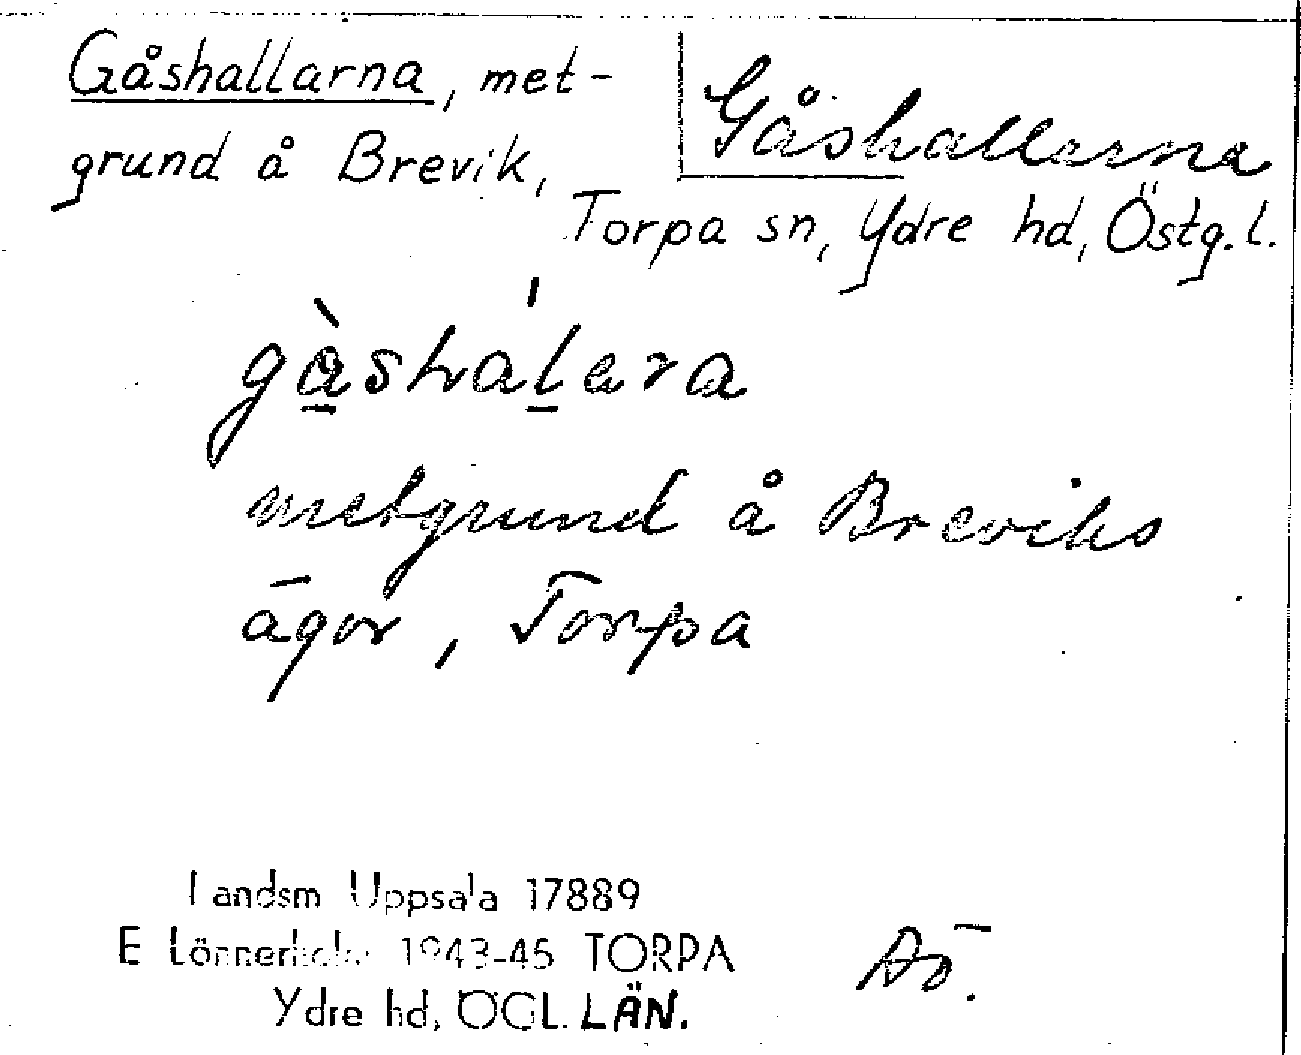 Gåshallarna, met-
grund å Brevik,
Gåshallarna
Torpa sn, Ydre hd, Östg.l.
gàshálara
metgrund å Breviks
ägor, Torpa
Landsm Uppsala 17889
E Lönnerholm 1943-45 TORPA
Ydre hd, ÖGL. LÄN.
Aö.